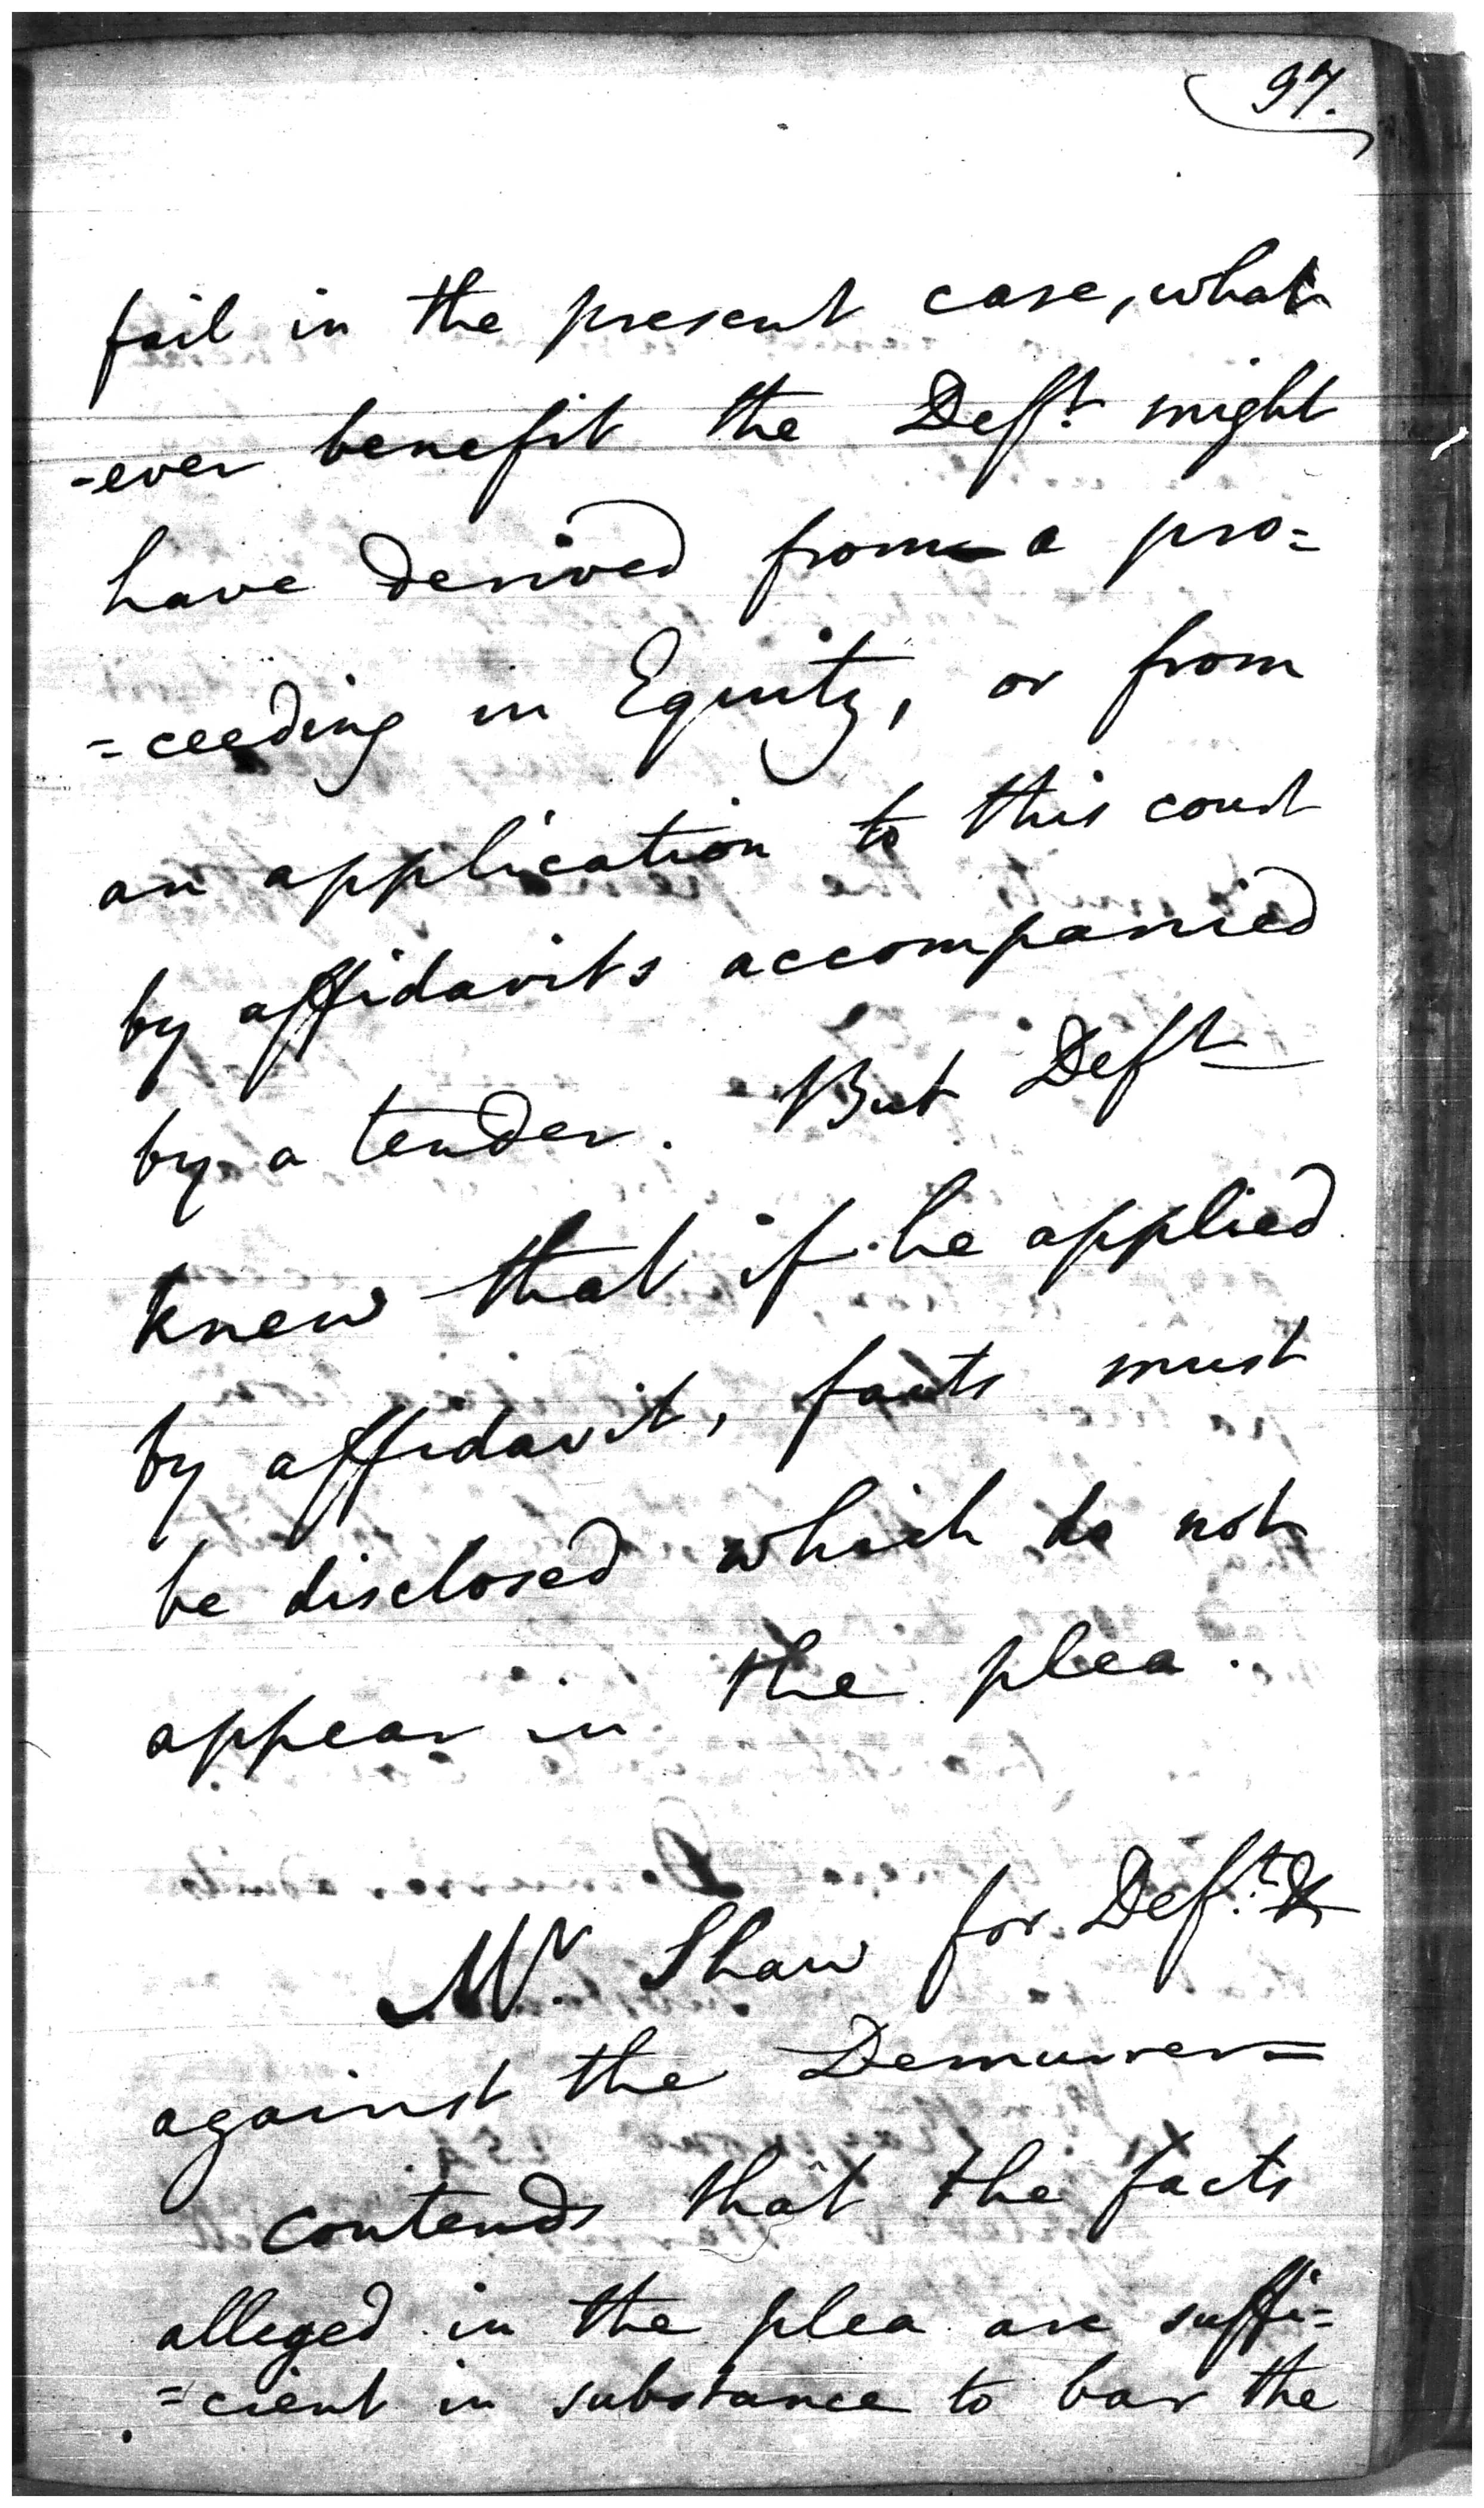 97.
fail in the present case, what
-ever benefit the Deft. might
have derived from a pro=
=ceeding in Equity, or from
an application to this court
by affidavits accompanied
by a tender. But Deft
knew that if he applied
by affidavit, facts must
be disclosed which do not
appear in the plea.
Mr. Shaw for Deft. &
against the Demurrer=
contends that the facts
alleged in the plea are suffi=
=cient in substance to bar the